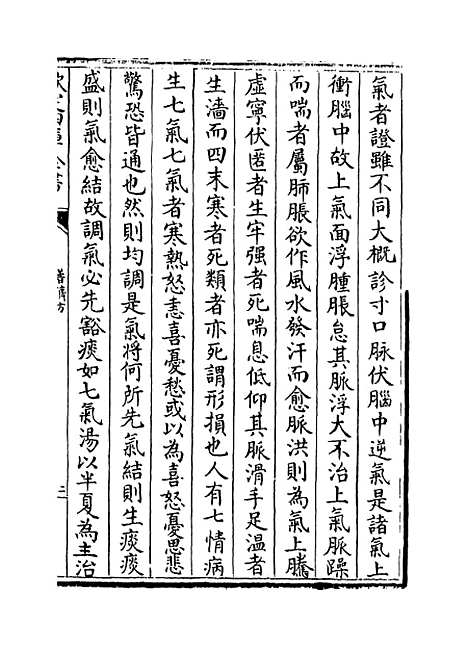 氣者證雖不同大概診寸口脉伏腦中逆氣是諸氣上
衝腦中故上氣面浮腫脹怠其脈浮大不治上氣脈躁
而喘者屬肺脹欲作風水發汗而愈脈洪則為氣上騰
虛寧伏匿者生牢强者死喘息低仰其脈滑手足温者
生濇而四末寒者死類者亦死謂形損也人有七情病
生七氣七氣者寒熱怒恚喜憂愁或以為喜怒憂思悲
驚恐皆通也然則均調是氣將何所先氣結則生痰痰
盛則氣愈結故調氣必先豁痰如七氣湯以半夏為主治
欽定四庫全書
普濟方
二